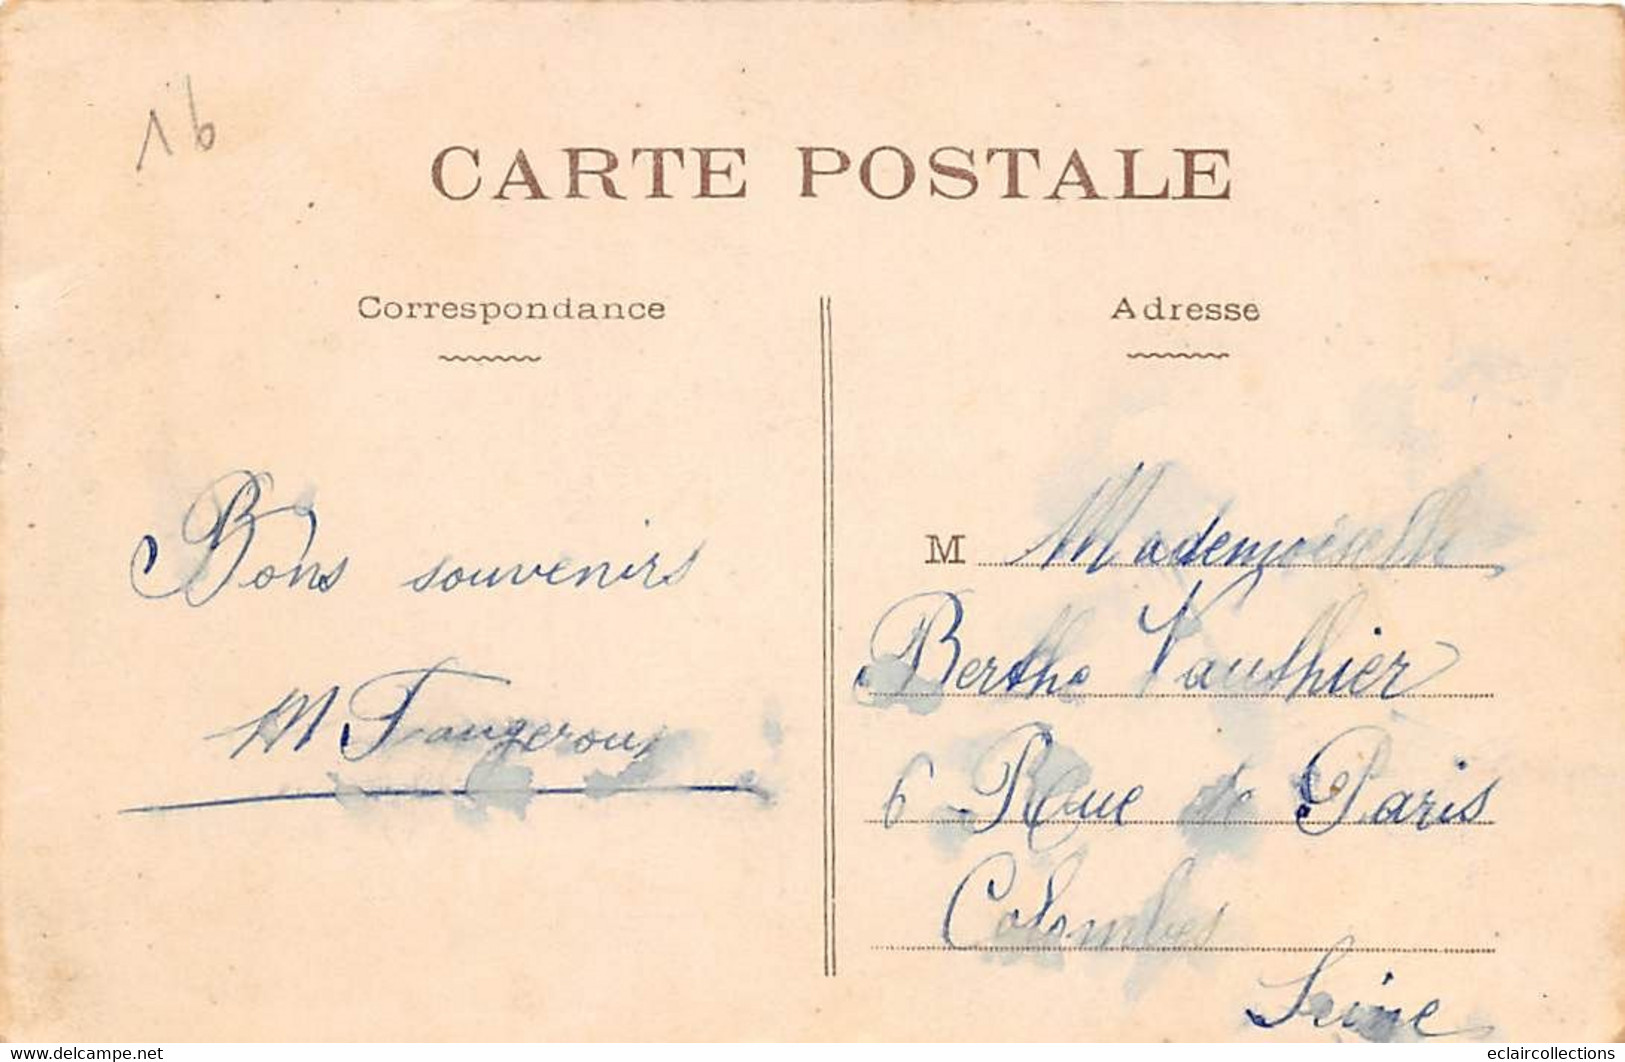 16
CARTE POSTALE
Correspondance
Adresse
Bons souvenirs
M Faugeroux
M Mademoiselle
Berthe Vauthier
6 Rue de Paris
Colombes
Seine
www.delcampe.net
eclaircollections